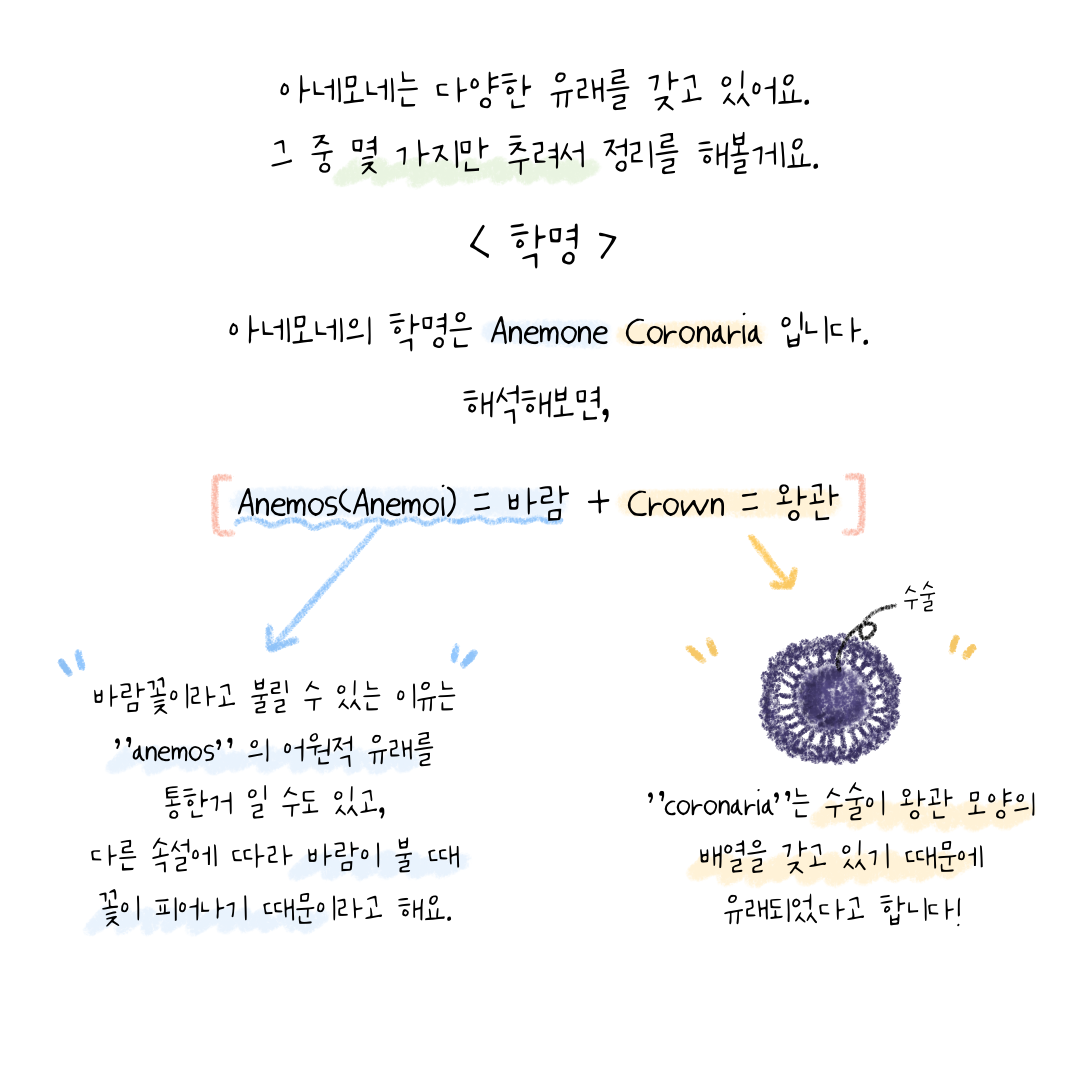 아네모네는 다양한 유래를 갖고 있어요.
그 중 몇 가지만 추려서 정리를 해볼게요.
< 학명 >
아네모네의 학명은 Anemone Coronaria 입니다.
해석해보면,
[Anemos(Anemoi) = 바람 + Crown = 왕관]
수술
바람꽃이라고 불릴 수 있는 이유는
"anemos" 의 어원적 유래를
통한거 일 수도 있고,
다른 속설에 따라 바람이 불 때
꽃이 피어나기 때문이라고 해요.
"coronaria"는 수술이 왕관 모양의
배열을 갖고 있기 때문에
유래되었다고 합니다!